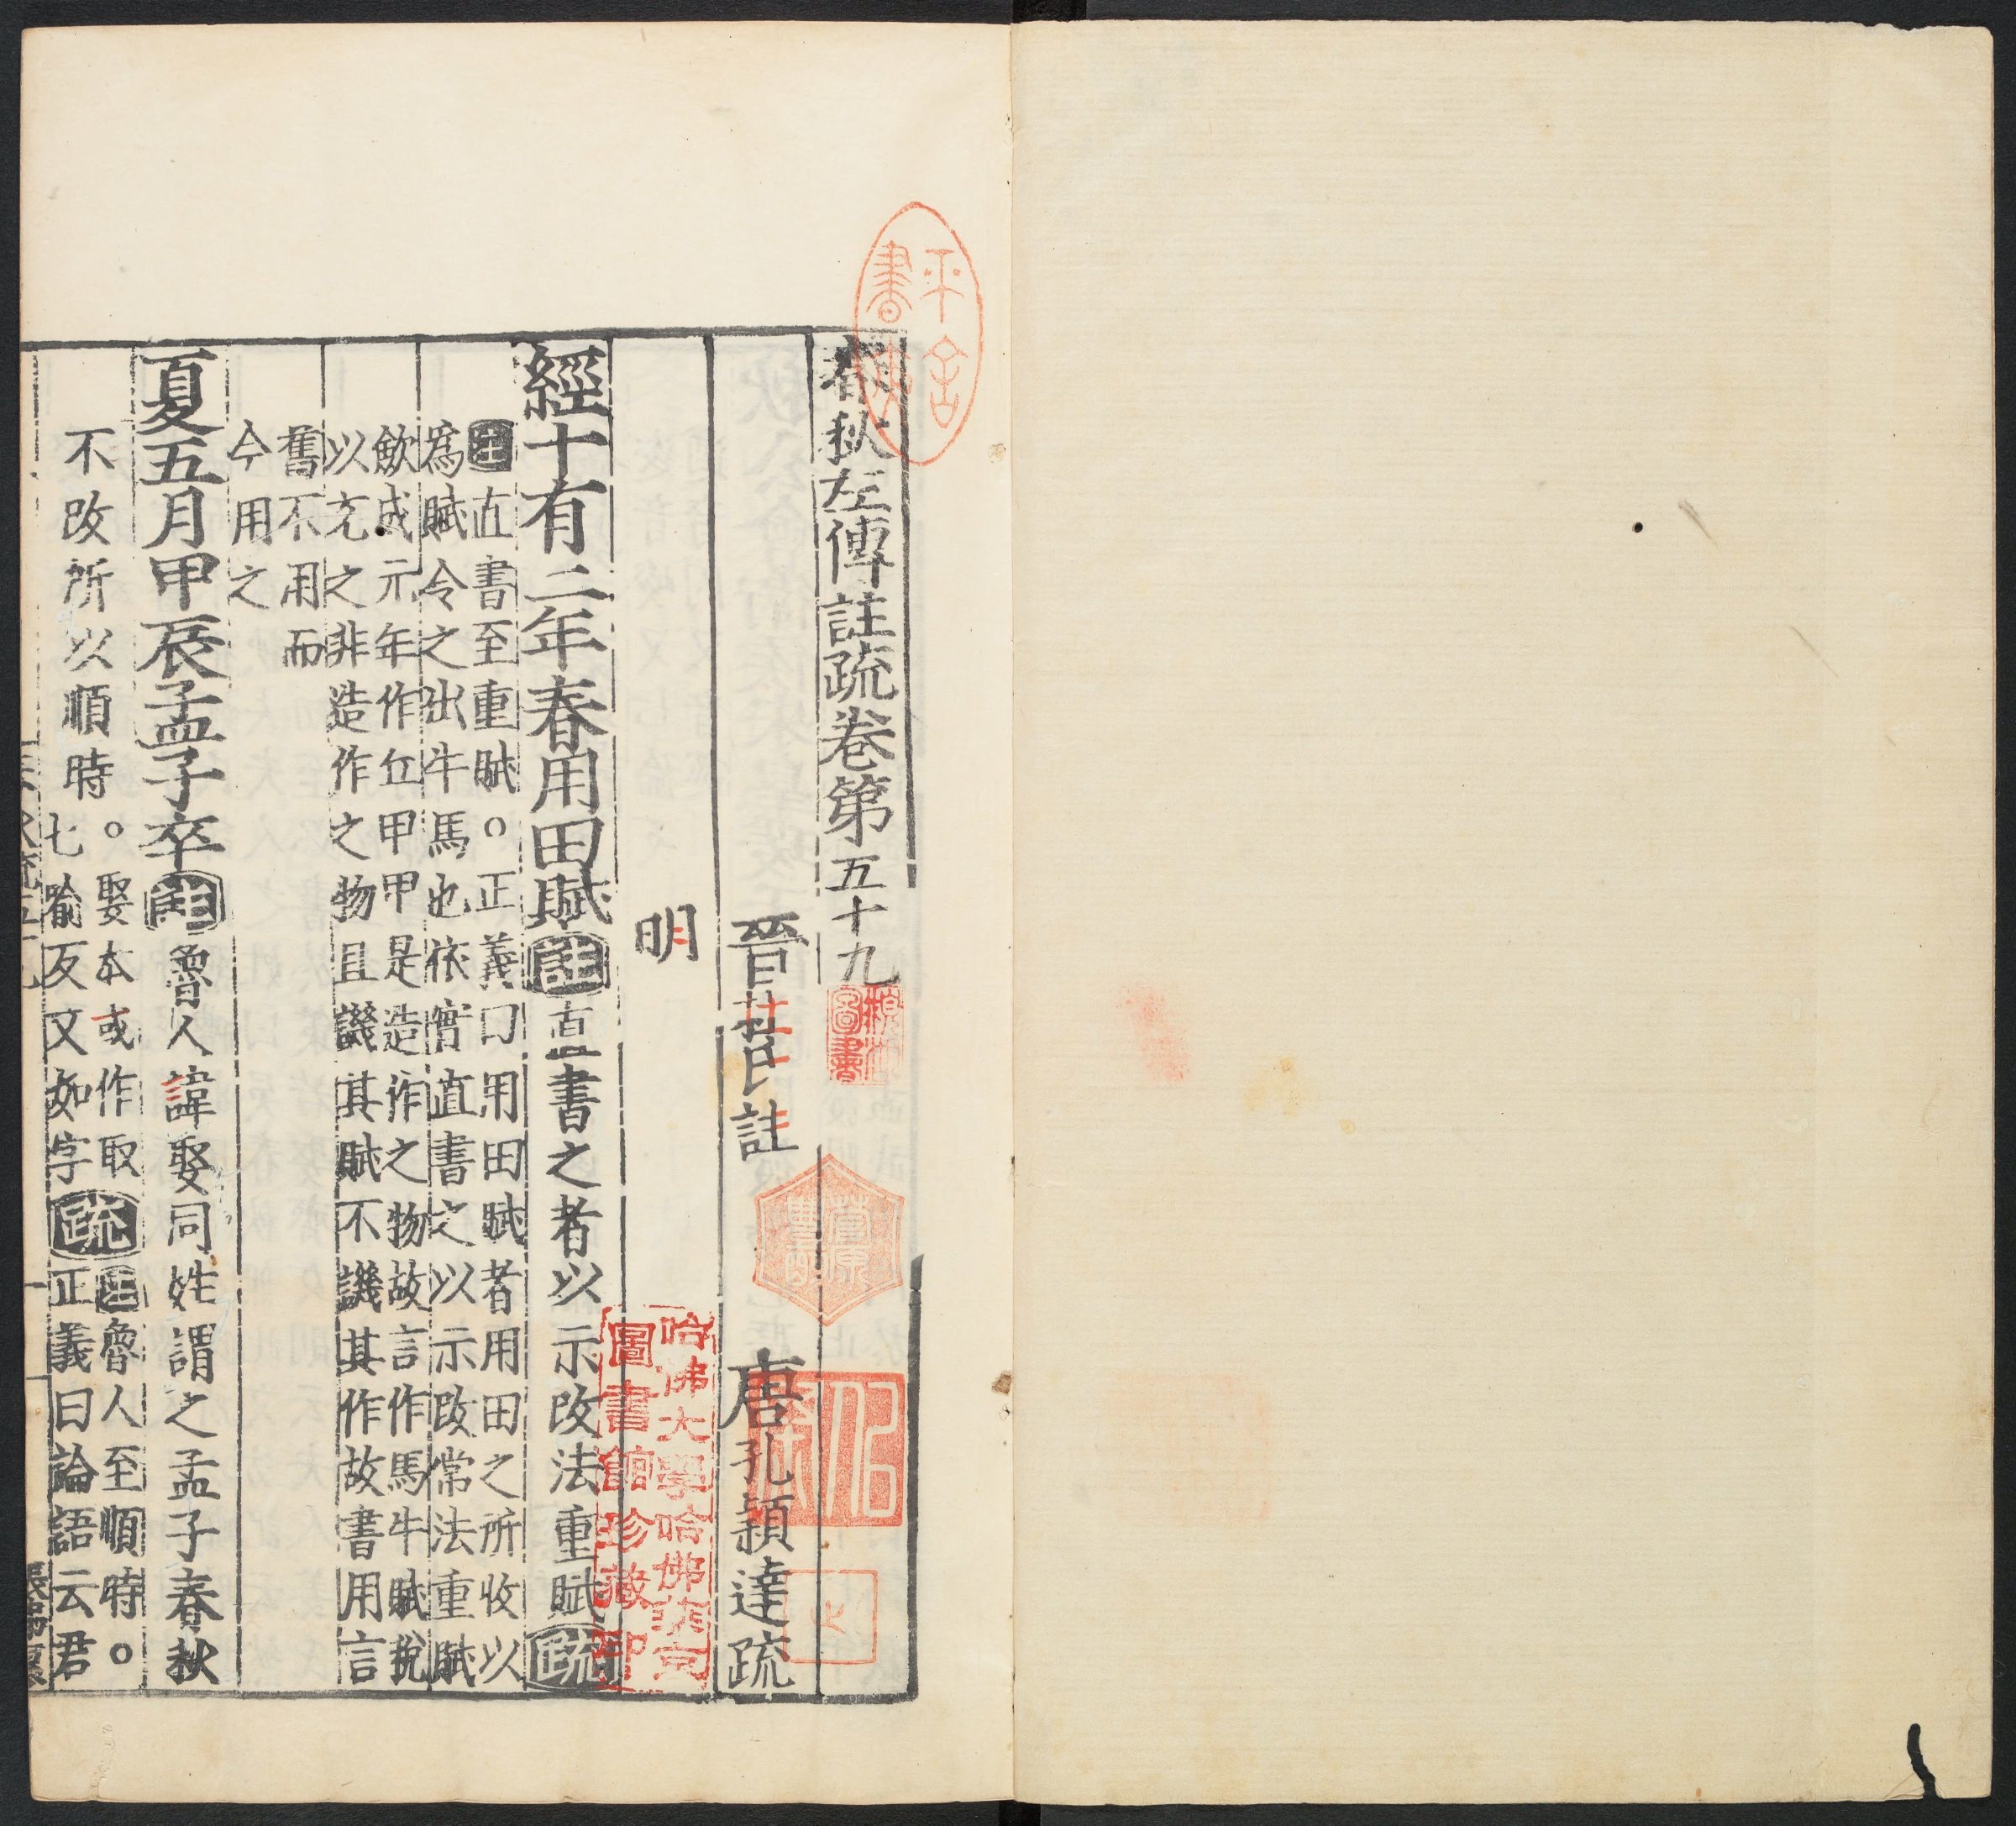 春秋左傳註疏卷第五十九
晉杜氏註　唐孔穎達疏
明
經十有二年春用田賦註直書之者以示改法重賦疏
註直書至重賦○正義曰用田賦者用田之所收以
爲賦令之出牛馬也依實直書之以示改常法重賦
歛成元年作丘甲甲是造作之物故言作馬牛賦稅
以充之非造作之物且譏其賦不譏其作故書用言
舊不用而
今用之
夏五月甲辰孟子卒註魯人諱娶同姓謂之孟子春秋
不改所以順時
○娶本或作取
七喻反又如字
疏
註魯人至順時○
正義曰論語云君
哈佛大學哈佛燕京
圖書館珍藏印